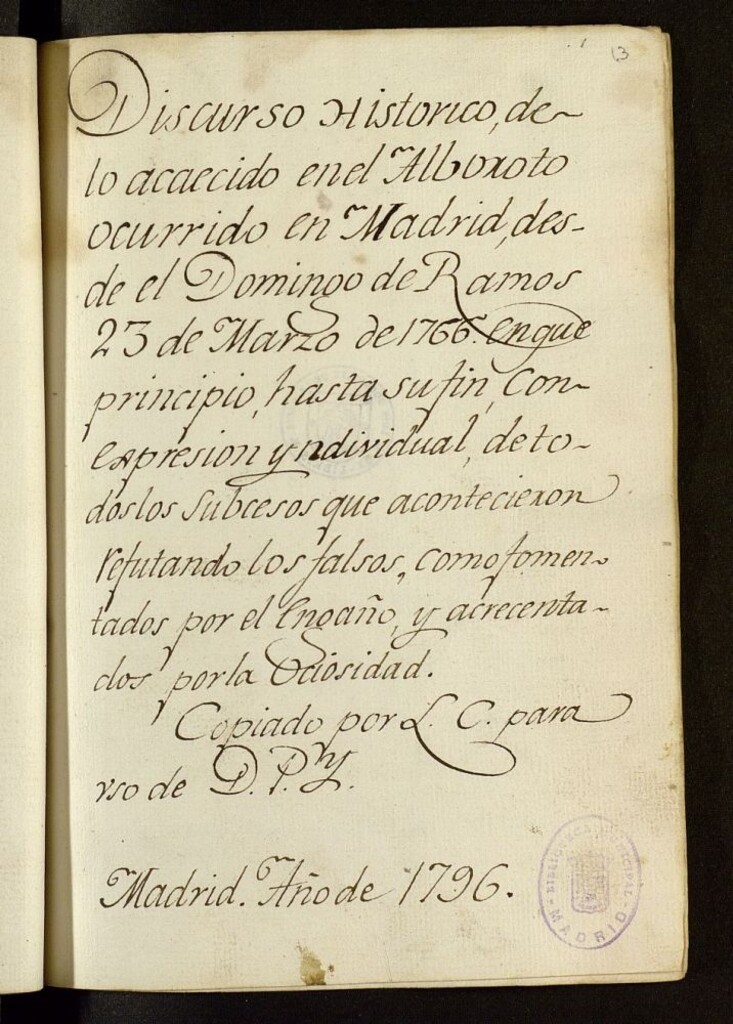 13
Discurso Historico, de
lo acaecido en el Alboroto
ocurrido en Madrid, des-
de el Domingo de Ramos
23 de Marzo de 1766. en que
principio, hasta su fin, Con
expresion yndividual, de to-
dos los Subcesos que acontecieron
refutando los falsos, como fomen-
tados por el Engaño, y acrecenta-
dos por la Ociosidad.
Copiado por L. C. para
vso de D. P. Y.
Madrid. Año de 1796.
BIBLIOTECA MUNICIPAL
MADRID